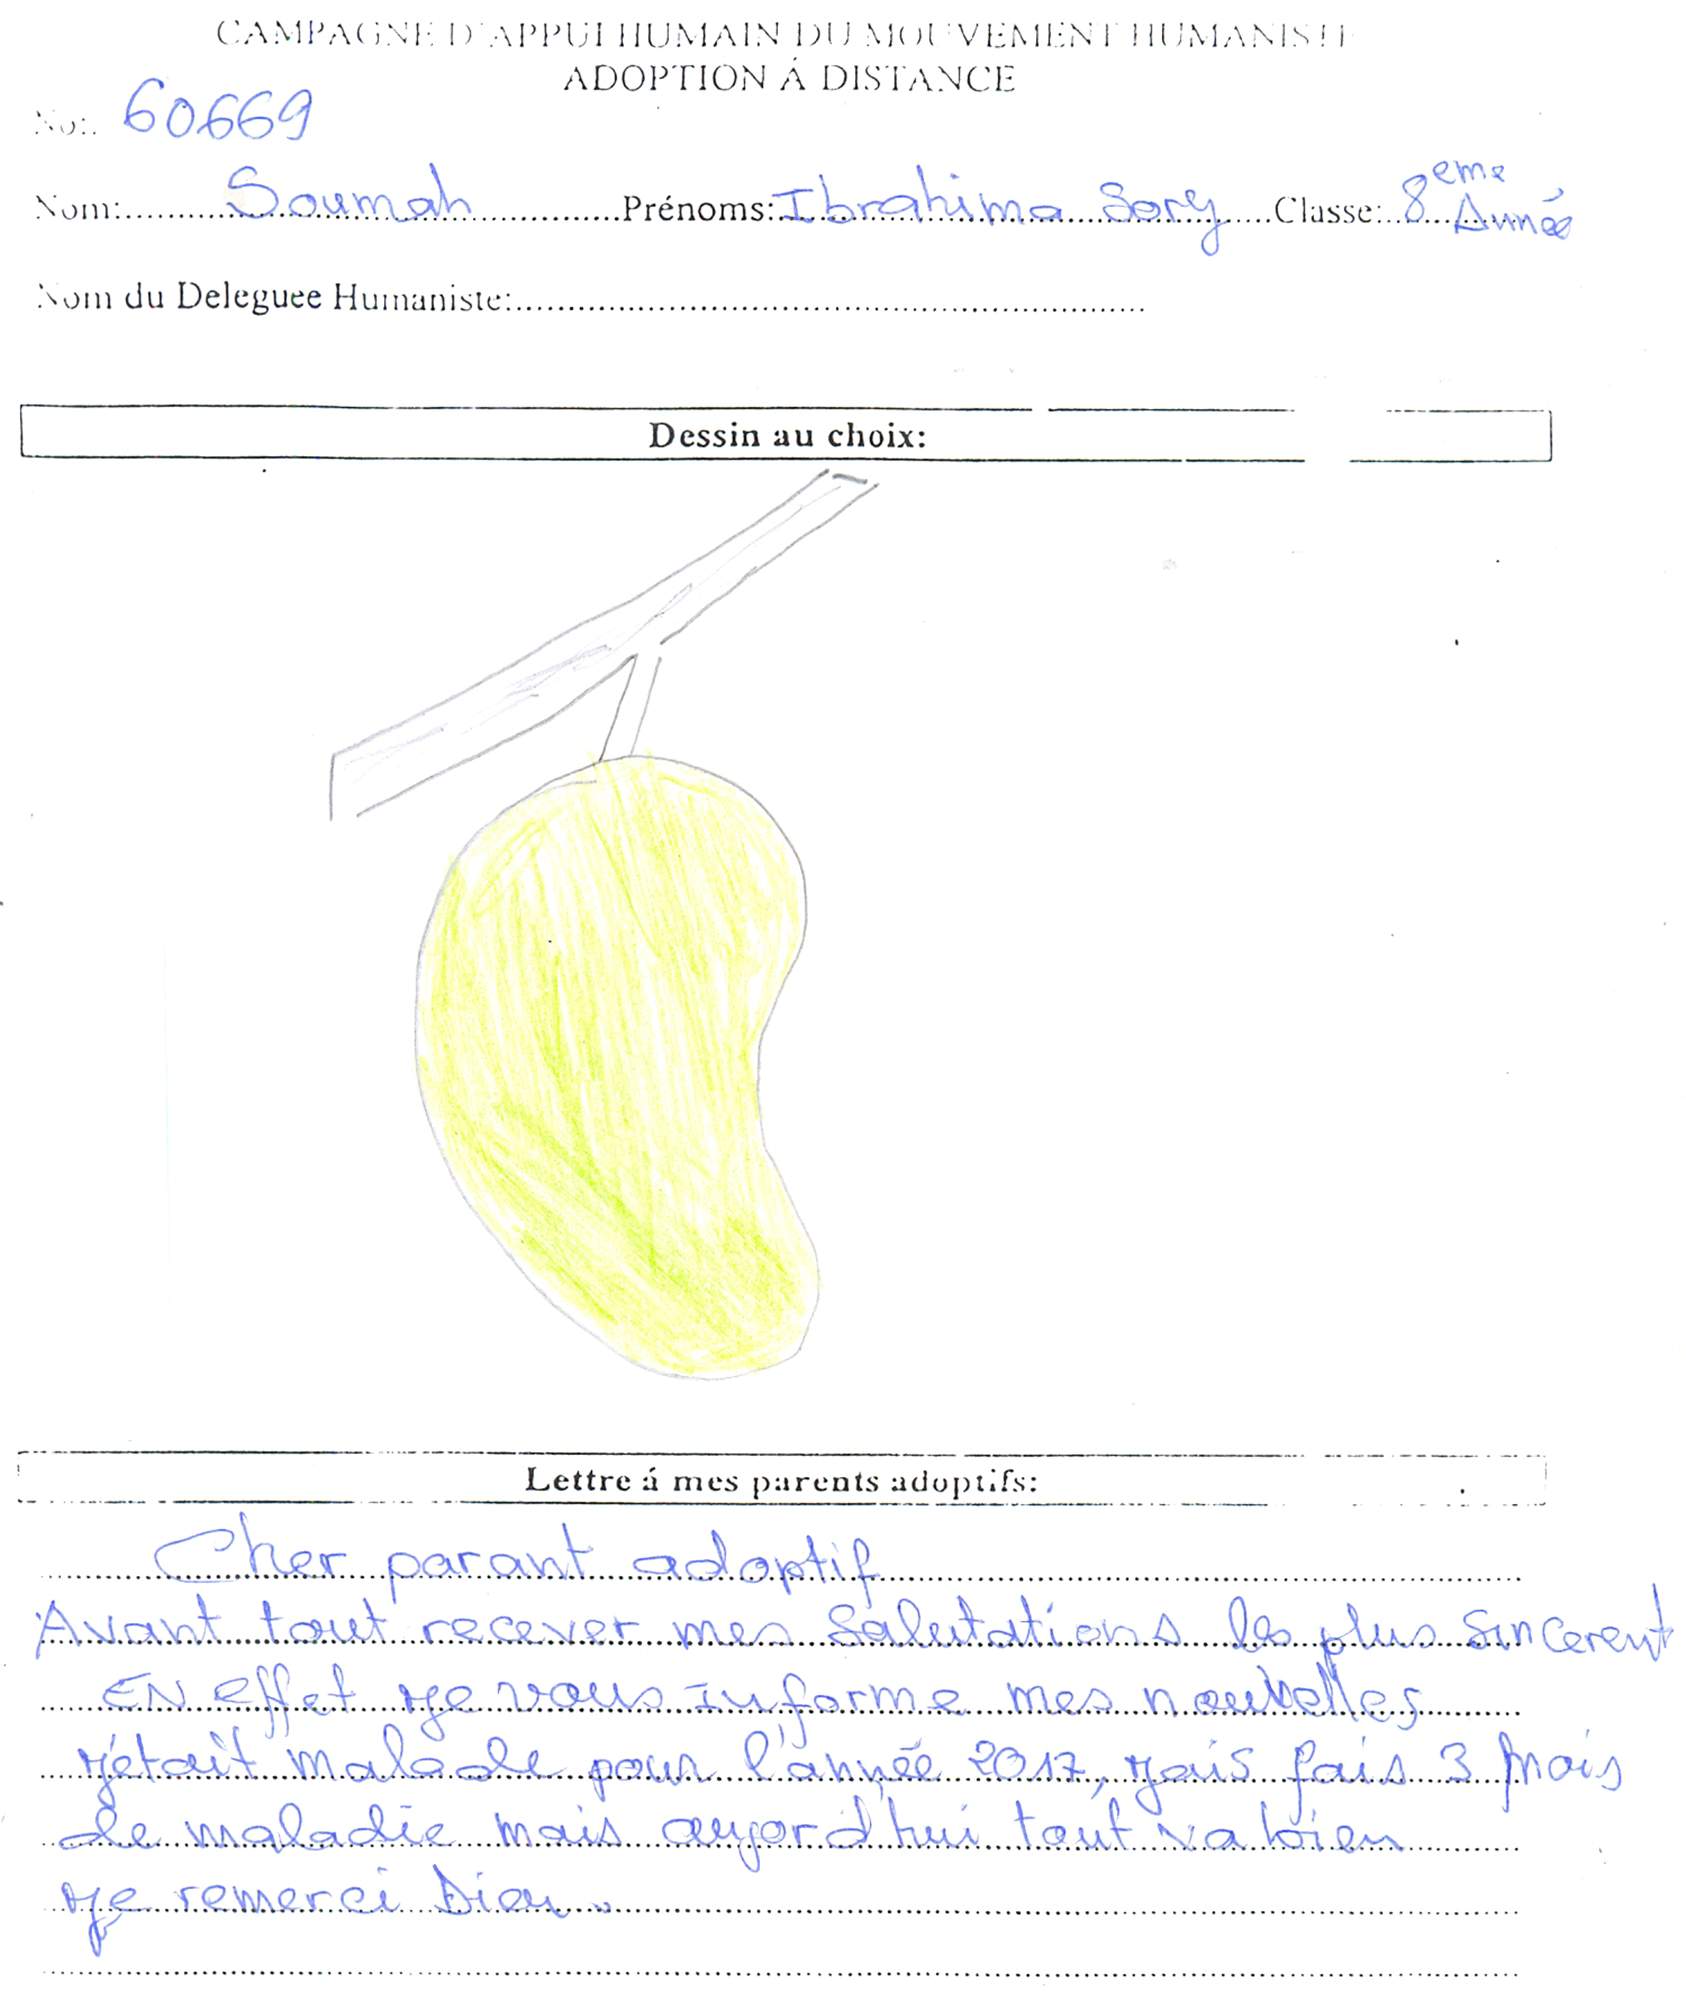 CAMPAGNE D'APPUI HUMAIN DU MOUVEMENT HUMANISTE
ADOPTION Á DISTANCE
No:. 60669
Nom: Soumah Prénoms: Ibrahima Sory Classe: 8eme Année
Nom du Deleguee Humaniste:
Dessin au choix:
Lettre á mes parents adoptifs:
Cher parant adoptif
Avant tout recever mes Salutations les plus Sincerent
EN effet je vous Informe mes nouvelles
j'était malade pour l'année 2017, jais fais 3 mois
de maladie mais aujord'hui tout va bien
je remerci Dieu.